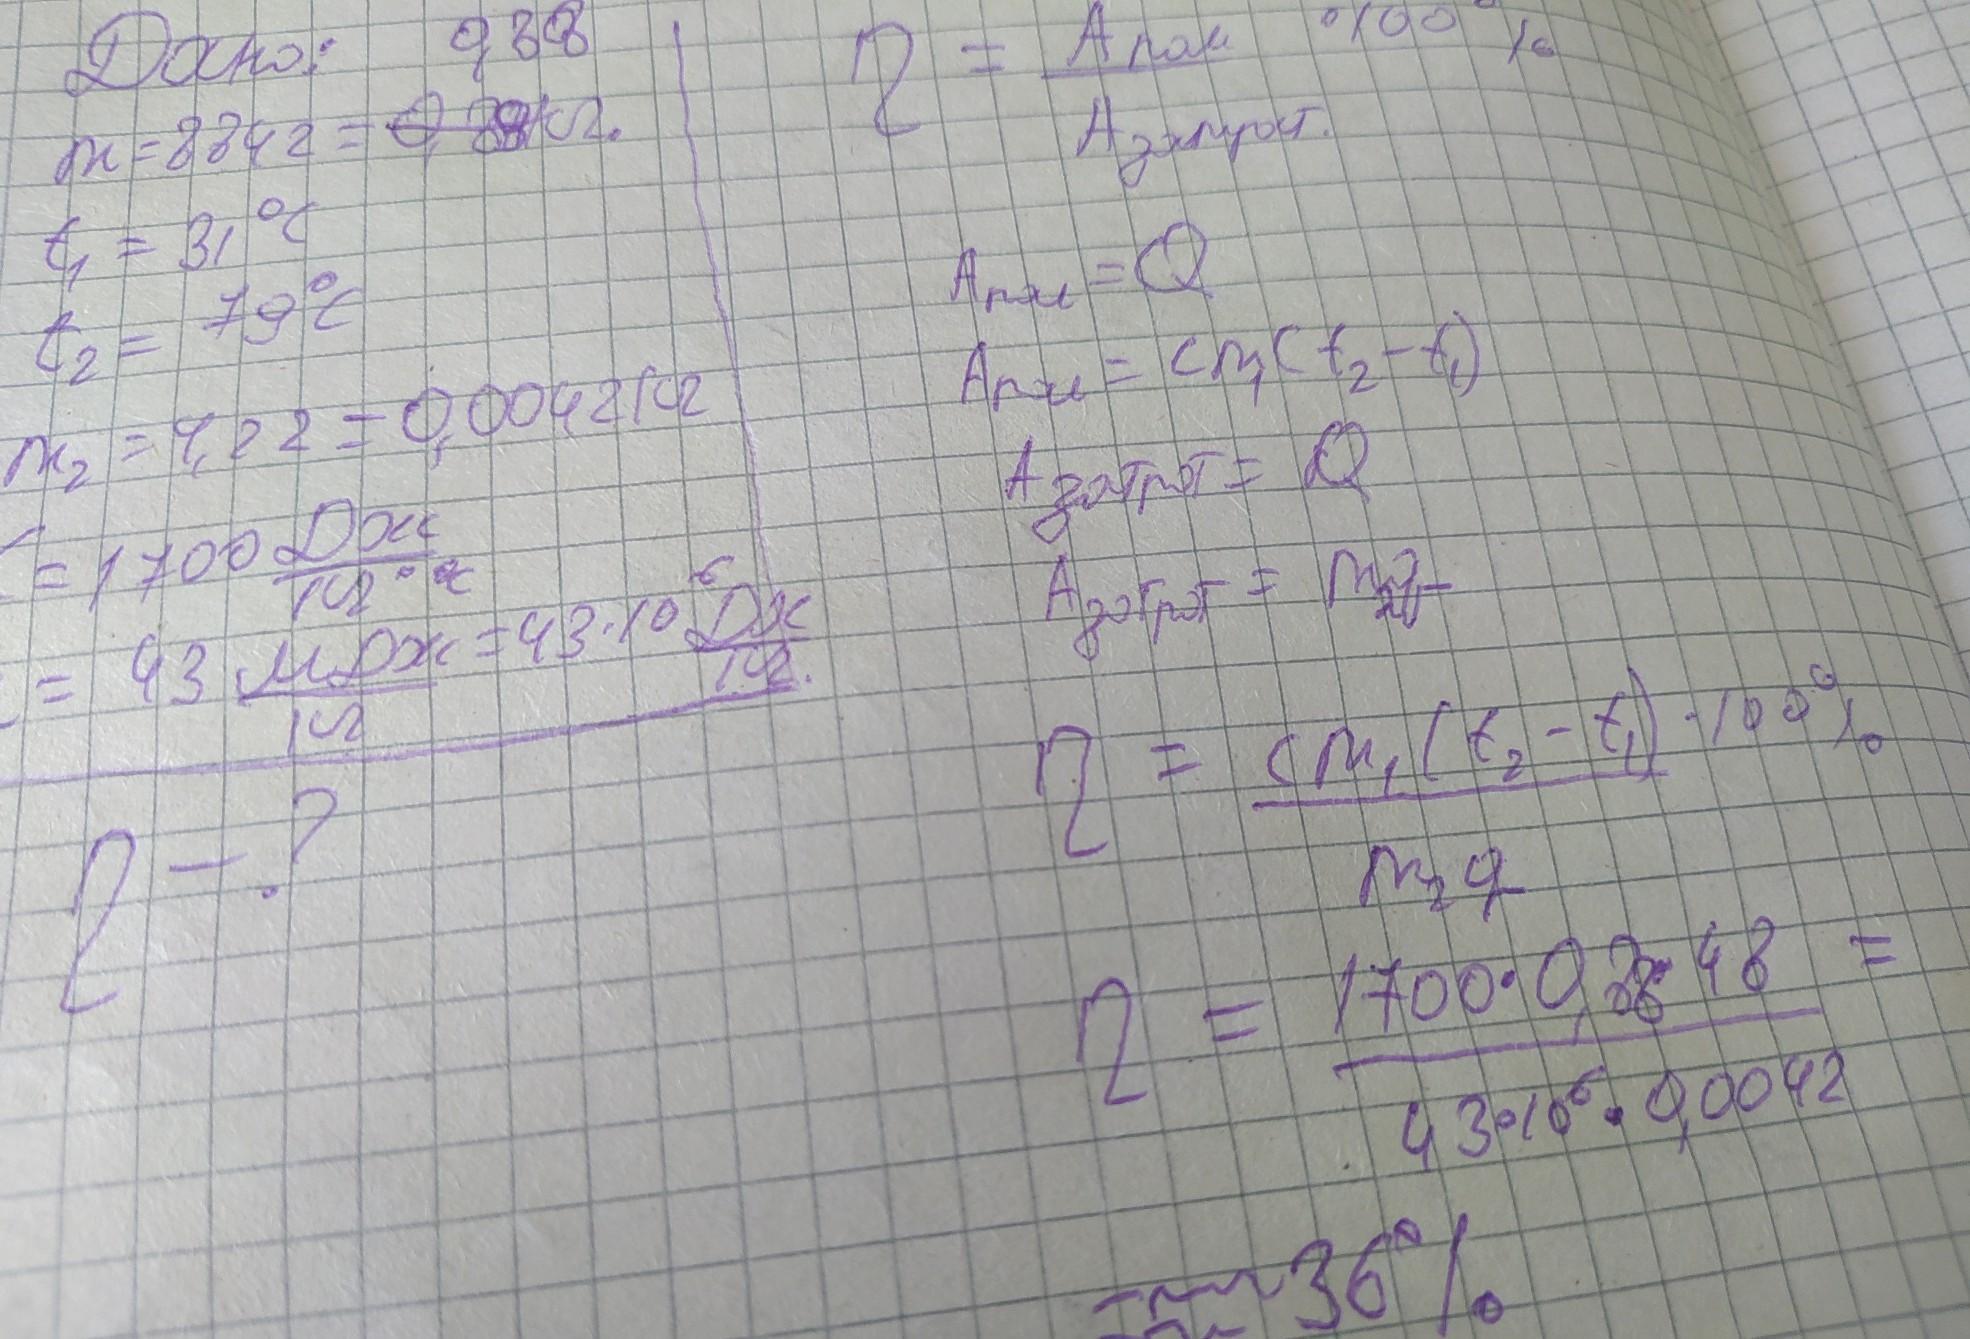 Дано: 988
t₁ = 31°C
t₂ = 79°C
m₂ = 4,2 г = 0,0042 кг
= 1700 Дж/кг·°C
= 43 МДж/кг = 43·10⁶ Дж/кг.
η – ?
η = Aпол/Aзатрат. · 100%
Aпол = Q
Aпол = cm₁(t₂ – t₁)
Aзатрат = Q
Aзатрат = m₂q
η = cm₁(t₂ – t₁)/m₂q · 100%
η = 1700 · 0, · 48/43·10⁶ · 0,0042 =
36%